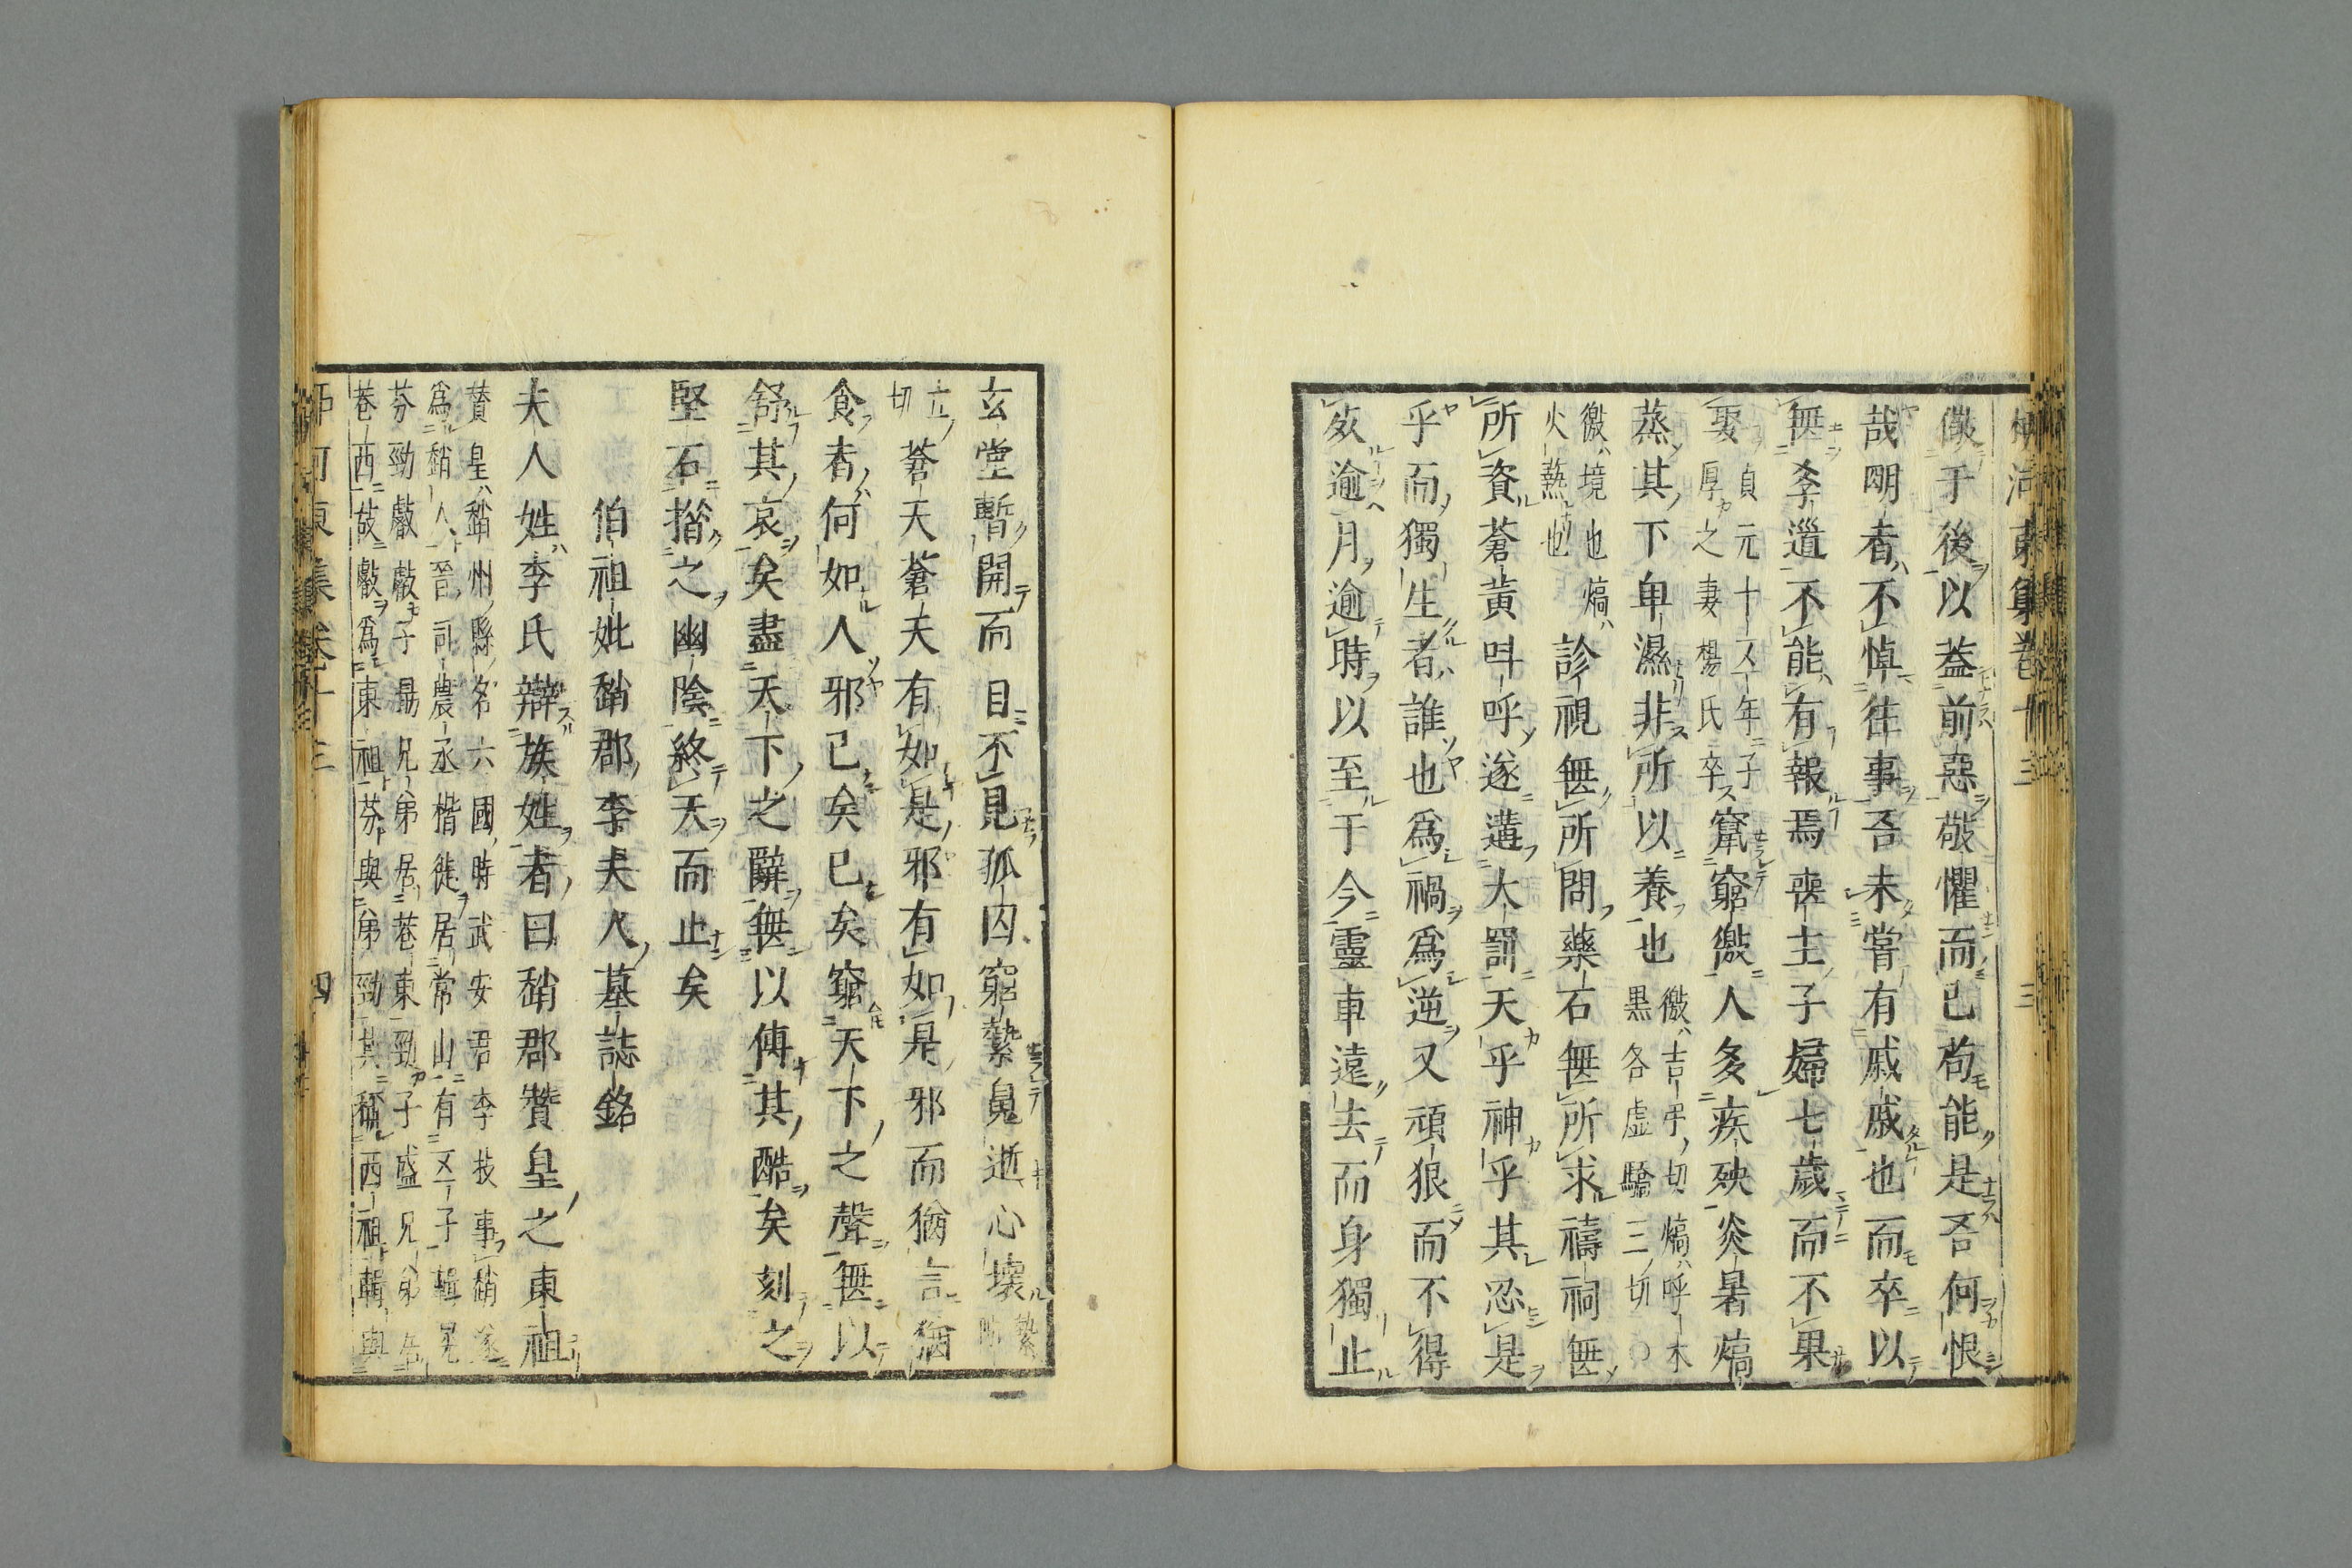 儆于後以蓋前惡敬懼而已苟能是吾何恨
哉明者不悼往事吾未嘗有戚戚也而卒以
無孝道不能有報焉喪主子婦七歲而不果
娶
貞元十五年子
厚之妻楊氏卒
竄窮徼人多疾殃炎暑熇
蒸其下卑濕非所以養也
徼吉弔切熇呼木
黒各虚驕三切○
徼境也熇
火蒸也
診視無所問藥石無所求禱祠無
所資蒼黃叫呼遂遘大罰天乎神乎其忍是
乎而獨生者誰也爲禍爲逆又頑狼而不得
死逾月逾時以至于今靈車遠去而身獨止
玄堂暫開而目不見孤囚窮縶魄逝心壞
縶
立
切
蒼天蒼天有如是邪有如是邪而猶言猶
食者何如人邪已矣已矣窮天下之聲無以
舒其哀矣盡天下之辭無以傳其酷矣刻之
堅石措之幽陰終天而止矣
伯祖妣趙郡李夫人墓誌銘
夫人姓李氏辯族姓者曰趙郡贊皇之東祖
贊皇趙州縣名六國時武安君李牧事趙遂
爲趙人晉司農丞楷徙居常山有五子輯晃
芬勁叡叡子勗兄弟居巷東勁子盛兄弟居
巷西故叡爲東祖芬與弟勁其稱西祖輯與
柳河東集卷十三
四
三